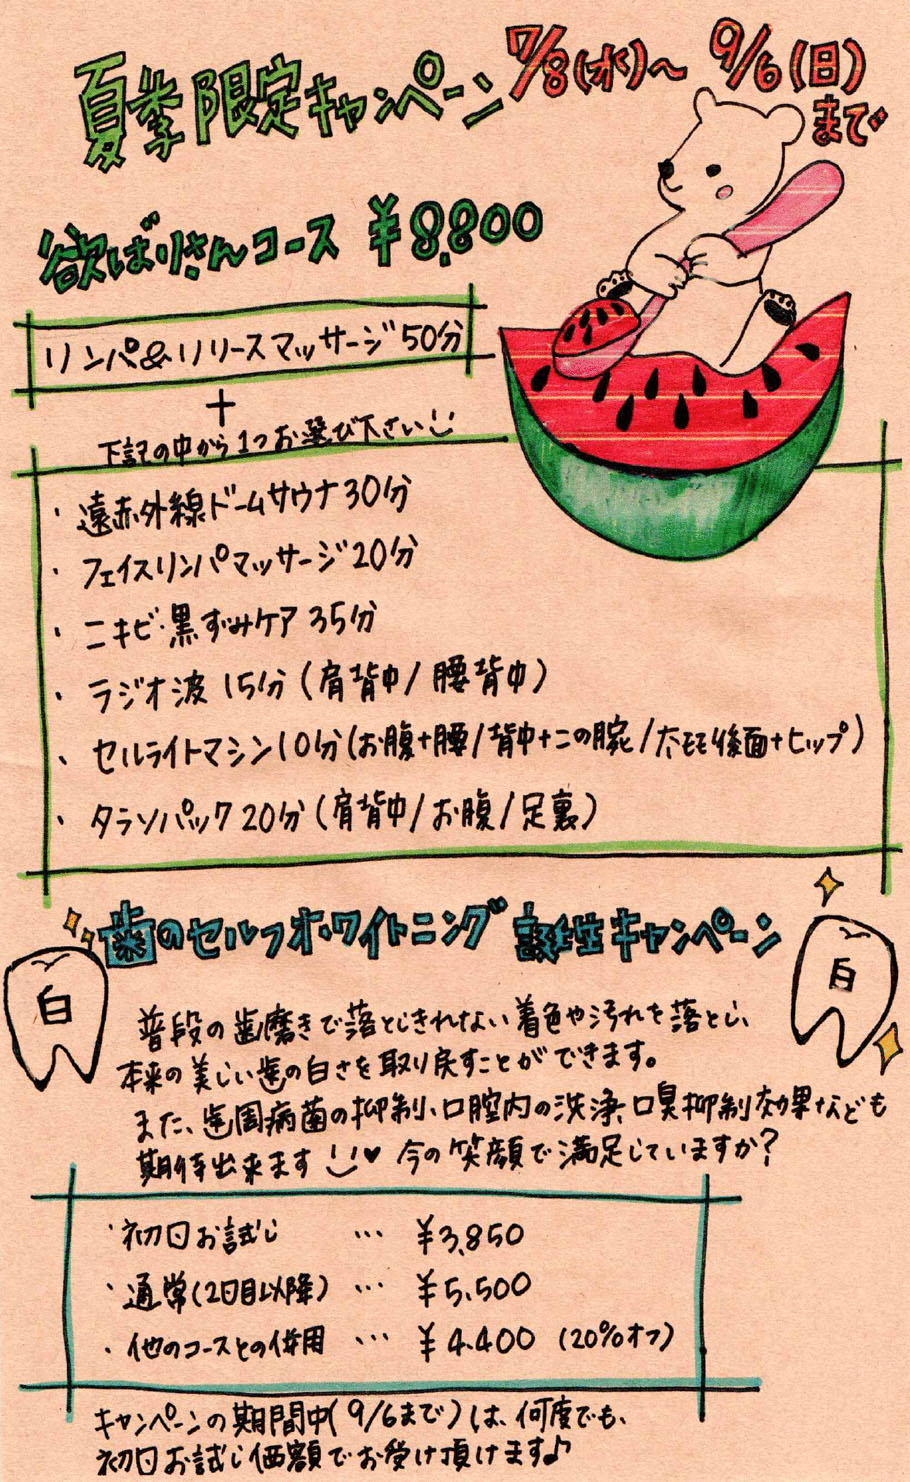 夏季限定キャンペーン 7/8(水)〜 9/6(日)
まで
欲ばりさんコース ¥8,800
リンパ&リリースマッサージ50分
+
下記の中から1つお選び下さい
・遠赤外線ドームサウナ30分
・フェイスリンパマッサージ20分
・ニキビ・黒ずみケア 35分
・ラジオ波 15分 (肩背中/腰背中)
・セルライトマシン10分(お腹+腰/背中+二の腕/太モモ後面+ヒップ)
・タラソパック 20分 (肩背中/お腹/足裏)
歯のセルフホワイトニング 誕生キャンペーン
白
白
普段の歯磨きで落としきれない着色や汚れを落とし、
本来の美しい歯の白さを取り戻すことができます。
また、歯周病菌の抑制、口腔内の洗浄、口臭抑制効果なども
期待出来ます ♥ 今の笑顔で満足していますか?
・初回お試し … ¥3,850
・通常(2回目以降) … ¥5,500
・他のコースとの併用 … ¥4,400 (20%オフ)
キャンペーンの期間中(9/6まで)は、何度でも、
初回お試し価額でお受け頂けます♪